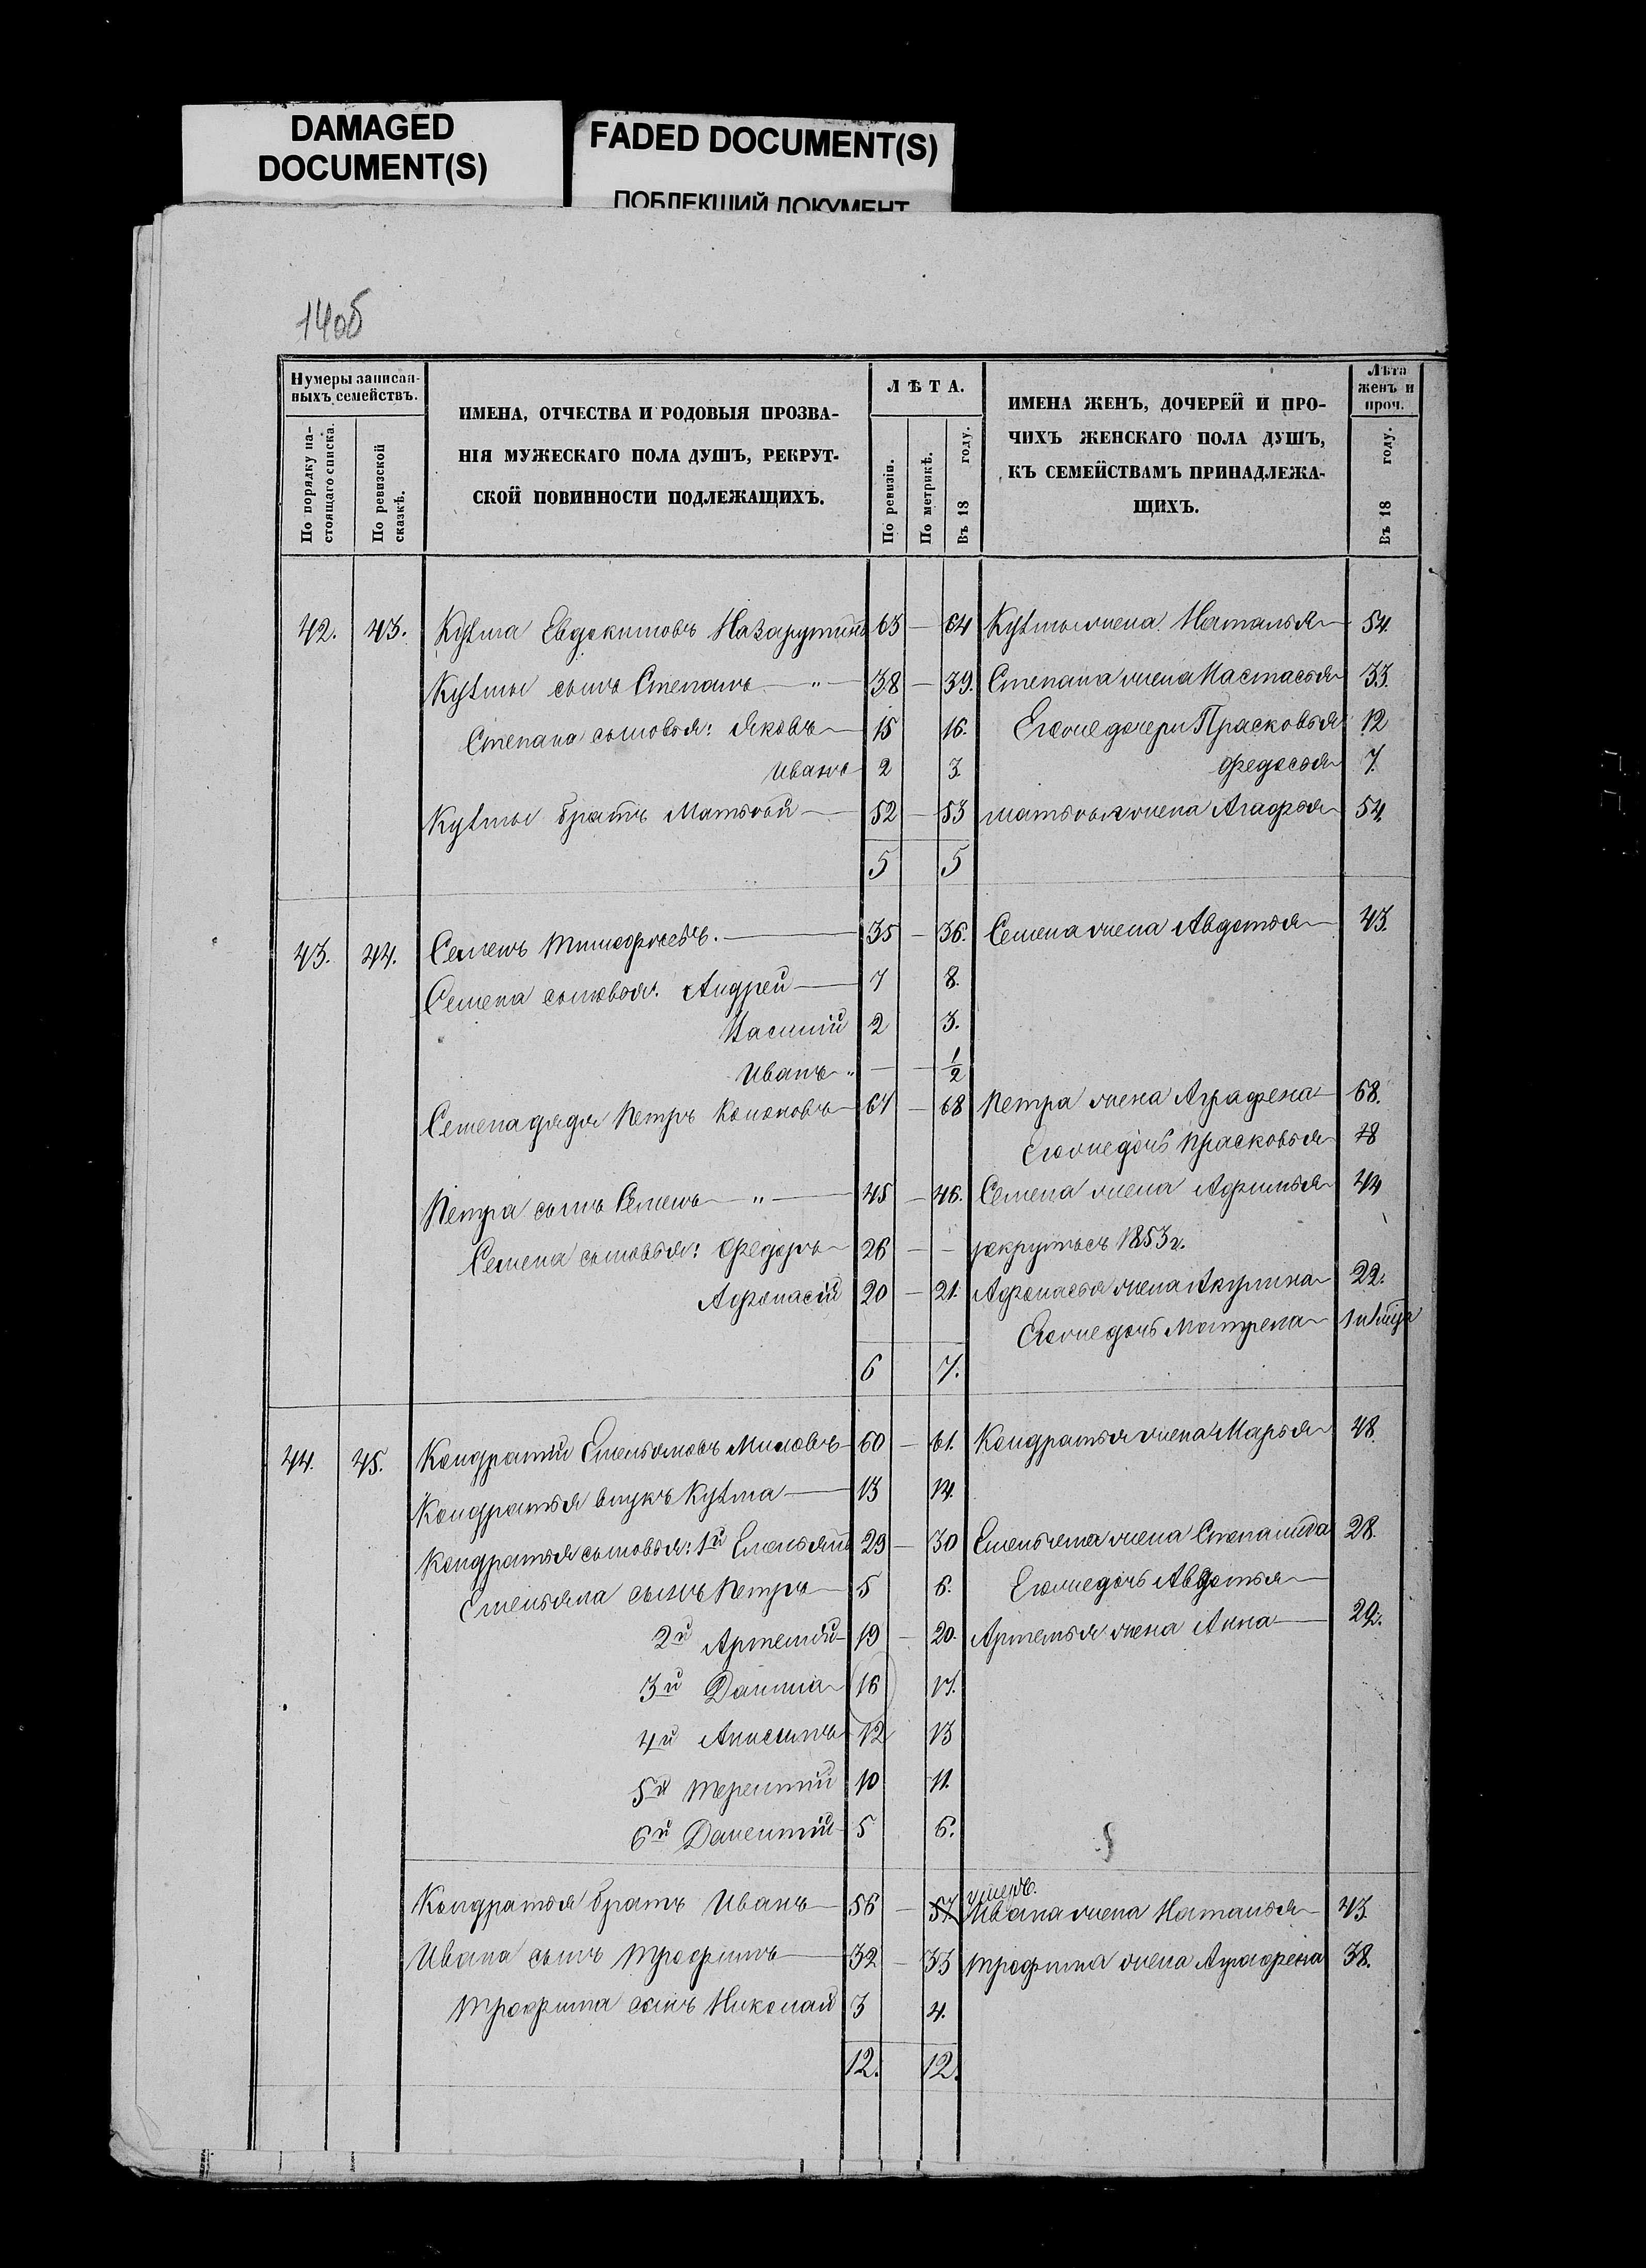 DAMAGED
DOCUMENT(S)
FADED DOCUMENT(S)
ПОБЛЕКШИЙ ДОКУМЕНТ
14об
Нумеры записан-
ныхъ семействъ.
По порядку на-
стоящаго списка.
По ревизской
сказкѣ.
ИМЕНА, ОТЧЕСТВА И РОДОВЫЯ ПРОЗВА-
НІЯ МУЖЕСКАГО ПОЛА ДУШЪ, РЕКРУТ-
СКОЙ ПОВИННОСТИ ПОДЛЕЖАЩИХЪ.
ЛѢТА.
По ревизіи.
По метрикѣ.
Въ 18 году.
ИМЕНА ЖЕНЪ, ДОЧЕРЕЙ И ПРО-
ЧИХЪ ЖЕНСКАГО ПОЛА ДУШЪ,
КЪ СЕМЕЙСТВАМЪ ПРИНАДЛЕЖА-
ЩИХЪ.
Лѣта
женъ и
проч.
Въ 18 году.
42. 43. Кузма Евдокимовъ Назарутинъ 63 — 64 Кузмы жена Наталья 54.
Кузмы сынъ Степанъ — " — 38 — 39. Степана жена Настасья 33.
Степана сыновья: Яковъ 15 16. Его же дочери Прасковья 12
Иванъ 2 3. Федосья 7.
Кузмы братъ Матвѣй 52 — 53 Матвѣя жена Агафья 54.
5 5
43. 44. Семенъ Тимофѣевъ. 35 — 36. Семена жена Авдотья 43.
Семена сыновья: Андрей 7 8.
Василій 2 3.
Иванъ " — — 1/2
Семена дядя Петръ Кононовъ 67 — 68 Петра жена Аграфена 68.
Его же дочь Прасковья 18
Петра сынъ Семенъ — " — 45 — 46. Семена жена Афимья 44
Семена сыновья: Федоръ 26 — — рекрутъ съ 1853 г.
Афонасій 20 — 21. Афонасья жена Акулина 22.
Его же дочь Матрена
6 7.
44. 45. Кондратій Емельяновъ Миловъ 60 — 61. Кондратья жена Марья 48.
Кондратья внукъ Кузма 13 14.
Кондратья сыновья: 1й Емельянъ 29 — 30 Емельяна жена Степанида 28.
Емельяна сынъ Петръ 5 6. Его же дочь Авдотья
2й Артемій 19 — 20. Артемья жена Анна 22.
3й Данила 16 17.
4й Анисимъ 12 13
5й Терентій 10 11.
6й Дементій 5 6.
умеръ.
Кондратья братъ Иванъ 56 — 57 Ивана жена Наталья 43.
Ивана сынъ Трофимъ 32 — 33 Трофима жена Аграфена 38.
Трофима сынъ Николай 3 4.
12. 12.